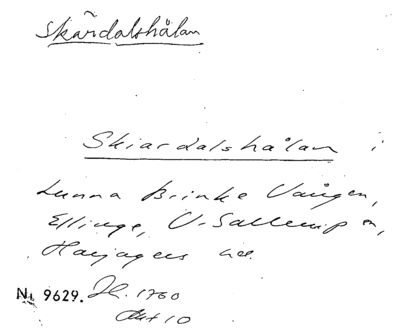 Skärdalshålan
Skiardalshålan i
Lunna Brinke Vången,
Ellinge, V. Sallerup sn,
Harjagers hd.
No 9629. Jb. 1760
Akt 10